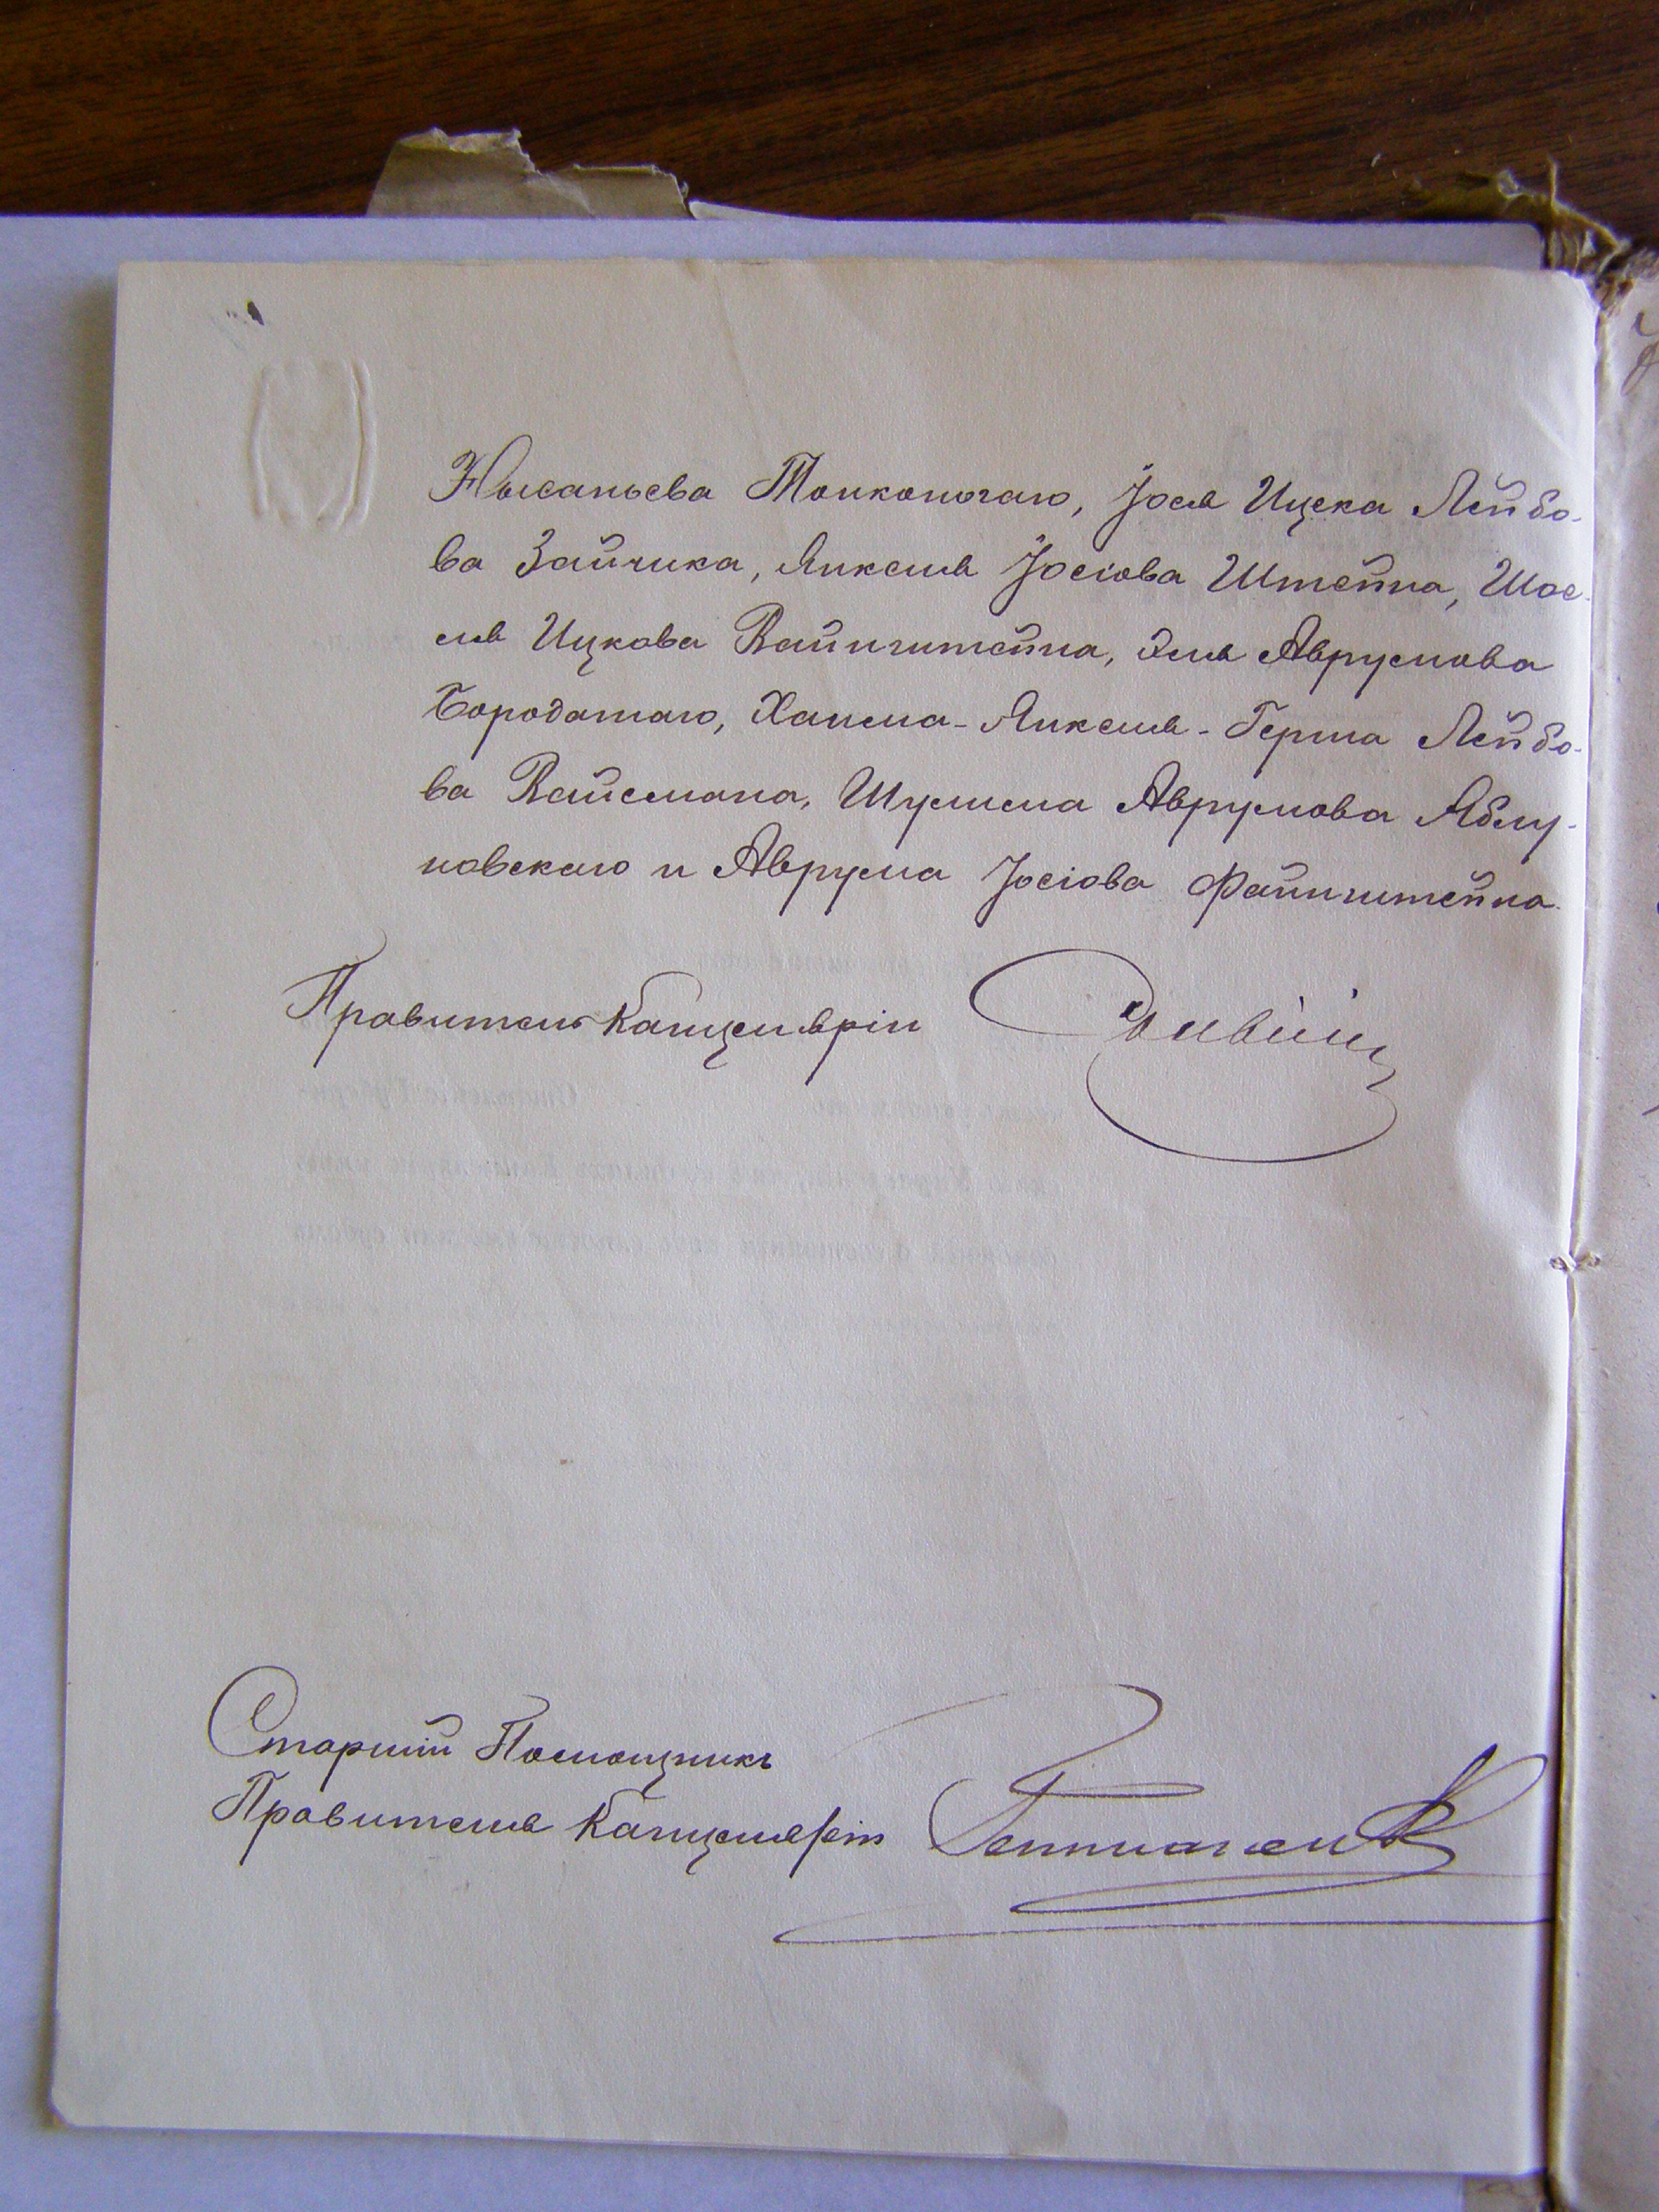 Нысаньева Тонконогаго, Іося Ицека Лейбо-
ва Зайчика, Янкеля Іосіова Штейна, Шое-
ля Ицкова Вайнштейна, Эля Аврумова
Бородатаго, Хаима-Янкеля-Герша Лейбо-
ва Вайсмана, Шулима Аврумова Яблу-
новскаго и Аврума Іосіова Файнштейна.
Правитель Канцеляріи
Старшій Помощникъ
Правителя Канцеляріи